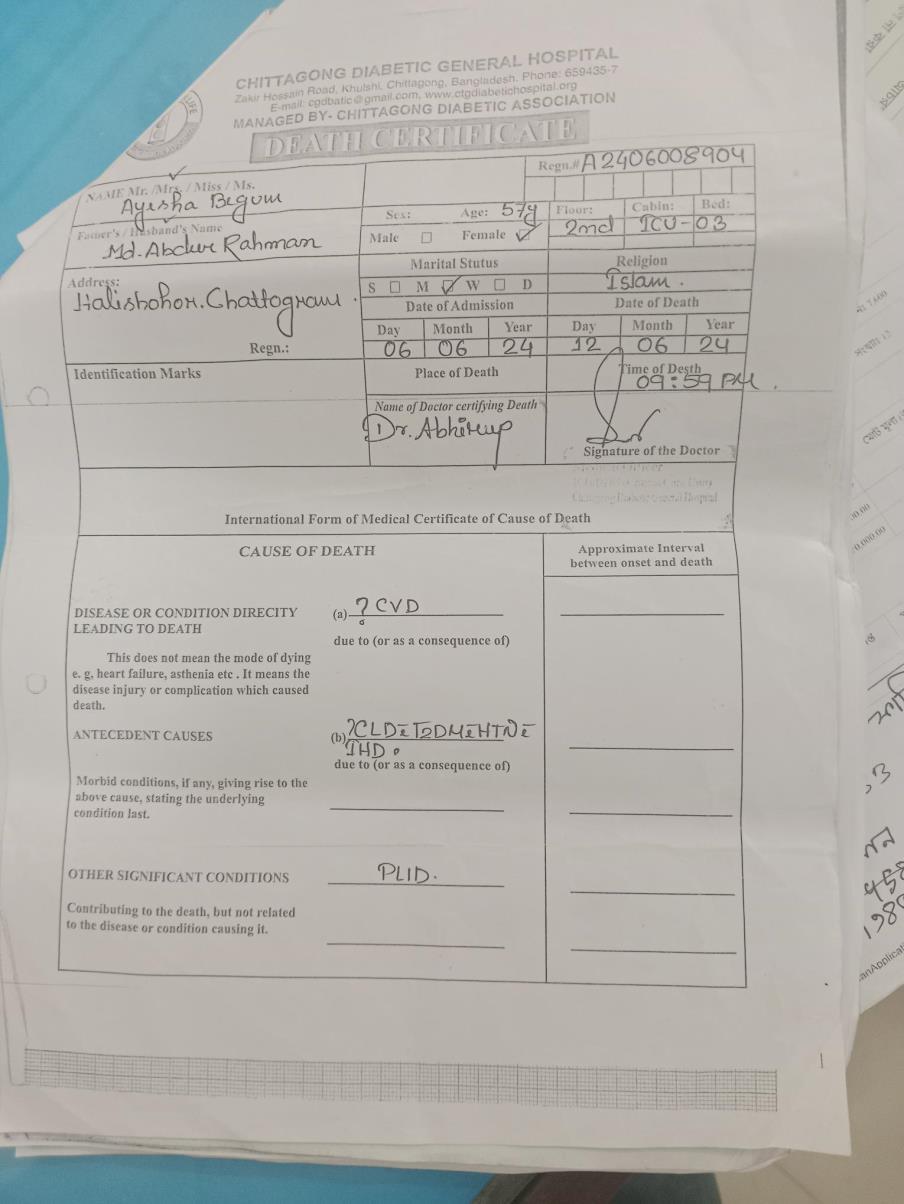 CHITTAGONG DIABETIC GENERAL HOSPITAL
Zakir Hossain Road, Khulshi, Chittagong, Bangladesh. Phone: 659435-7
E-mail: cgdbatic@gmail.com, www.ctgdiabetichospital.org
MANAGED BY- CHITTAGONG DIABETIC ASSOCIATION
DEATH CERTIFICATE
Regn.# A2406008904
NAME Mr. /Mrs. / Miss / Ms.
Ayesha Begum
Sex: Age: 57y Floor: Cabin: Bed:
Male Female 2nd ICU-03
Father's / Husband's Name
Md. Abdur Rahman
Marital Stutus Religion
S M W D Islam.
Address:
Halishohor. Chattogram.
Date of Admission Date of Death
Day Month Year Day Month Year
06 06 24 12 06 24
Regn.:
Identification Marks Place of Death Time of Desth
09:59 PM.
Name of Doctor certifying Death
Dr. Abhirup
Signature of the Doctor
International Form of Medical Certificate of Cause of Death
CAUSE OF DEATH
Approximate Interval
between onset and death
DISEASE OR CONDITION DIRECITY
LEADING TO DEATH
(a) ? CVD
due to (or as a consequence of)
This does not mean the mode of dying
e. g, heart failure, asthenia etc . It means the
disease injury or complication which caused
death.
ANTECEDENT CAUSES
(b) ?CLD c̄ T2DM c̄ HTN c̄
IHD.
due to (or as a consequence of)
Morbid conditions, if any, giving rise to the
above cause, stating the underlying
condition last.
OTHER SIGNIFICANT CONDITIONS
PLID.
Contributing to the death, but not related
to the disease or condition causing it.